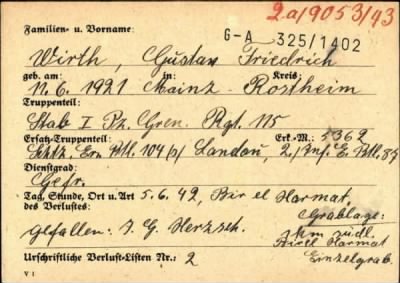 2a/9053/43
Familien- u. Vorname:
G-A 325/1402
Wirth, Gustav Friedrich
geb. am: in: Kreis:
11.6.1921 Mainz-Kostheim
Truppenteil:
Stab I Pz. Gren. Rgt. 115
Ersatz-Truppenteil: Erk.-M.: 5362
Schtz. Ers. Btl. 104 Landau, 2./Inf. E. Btl. 87
Dienstgrad:
Gefr.
Tag, Stunde, Ort u. Art 5.6.42, Bir el Harmat,
des Verlustes: Grablage:
gefallen: I.G. Herzsch. km südl.
Bir el Harmat
Urschriftliche Verlust-Listen Nr.: 2 Einzelgrab.
V I